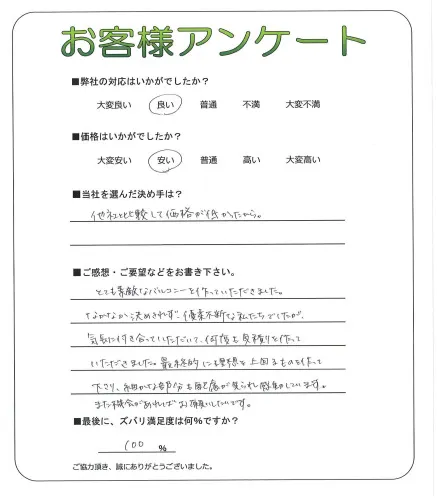 お客様アンケート
■弊社の対応はいかがでしたか？
大変良い 良い 普通 不満 大変不満
■価格はいかがでしたか？
大変安い 安い 普通 高い 大変高い
■当社を選んだ決め手は？
他社と比較して価格が低かったから。
■ご感想・ご要望などをお書き下さい。
とても素敵なバルコニーを作っていただきました。
なかなか決めきれず、優柔不断な私たちでしたが、
気長に付き合っていただいて、何度も見積りを作って
いただきました。最終的にも理想を上回るものを作って
下さり、細かな部分も配慮が見られて感動しています。
また機会があればお願いしたいです。
■最後に、ズバリ満足度は何％ですか？
100 %
ご協力頂き、誠にありがとうございました。